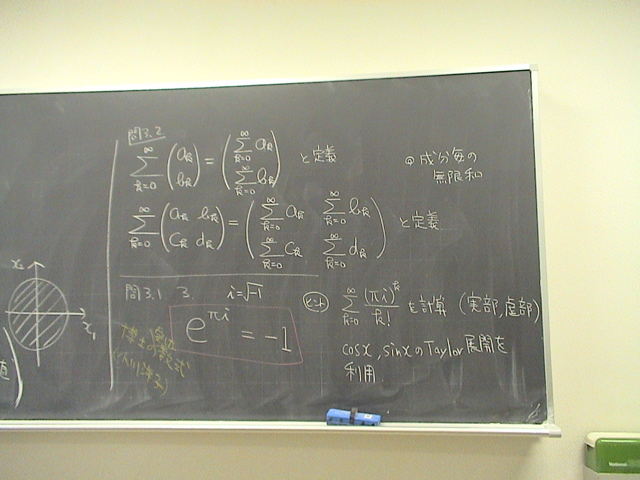 問3.2
\sum_{k=0}^{\infty} \begin{pmatrix} a_k \\ b_k \end{pmatrix} = \begin{pmatrix} \sum_{k=0}^{\infty} a_k \\ \sum_{k=0}^{\infty} b_k \end{pmatrix} と定義
成分毎の
無限和
\sum_{k=0}^{\infty} \begin{pmatrix} a_k & b_k \\ c_k & d_k \end{pmatrix} = \begin{pmatrix} \sum_{k=0}^{\infty} a_k & \sum_{k=0}^{\infty} b_k \\ \sum_{k=0}^{\infty} c_k & \sum_{k=0}^{\infty} d_k \end{pmatrix} と定義
x_2
x_1
問3.1 3. i=\sqrt{-1}
e^{\pi i} = -1
博士の愛した
数式
ヒント \sum_{k=0}^{\infty} \frac{(\pi i)^k}{k!} を計算 (実部,虚部)
cosx, sinxのTaylor展開を
利用
National